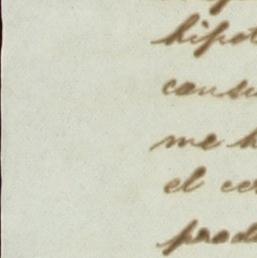 hipot
cansu
me h
el cer
prod